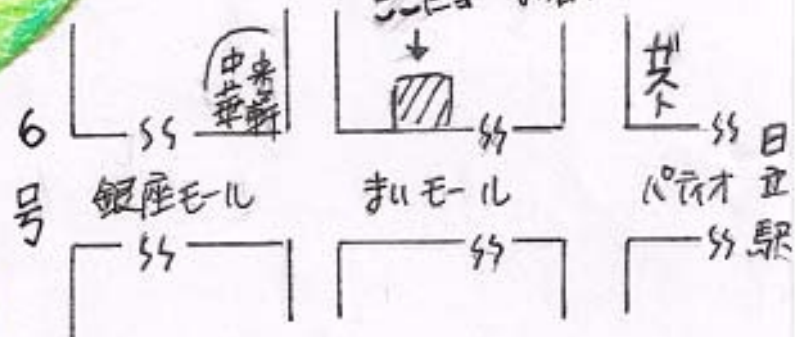 中華
央軒
ガスト
6号
銀座モール
まいモール
パティオ
日立駅